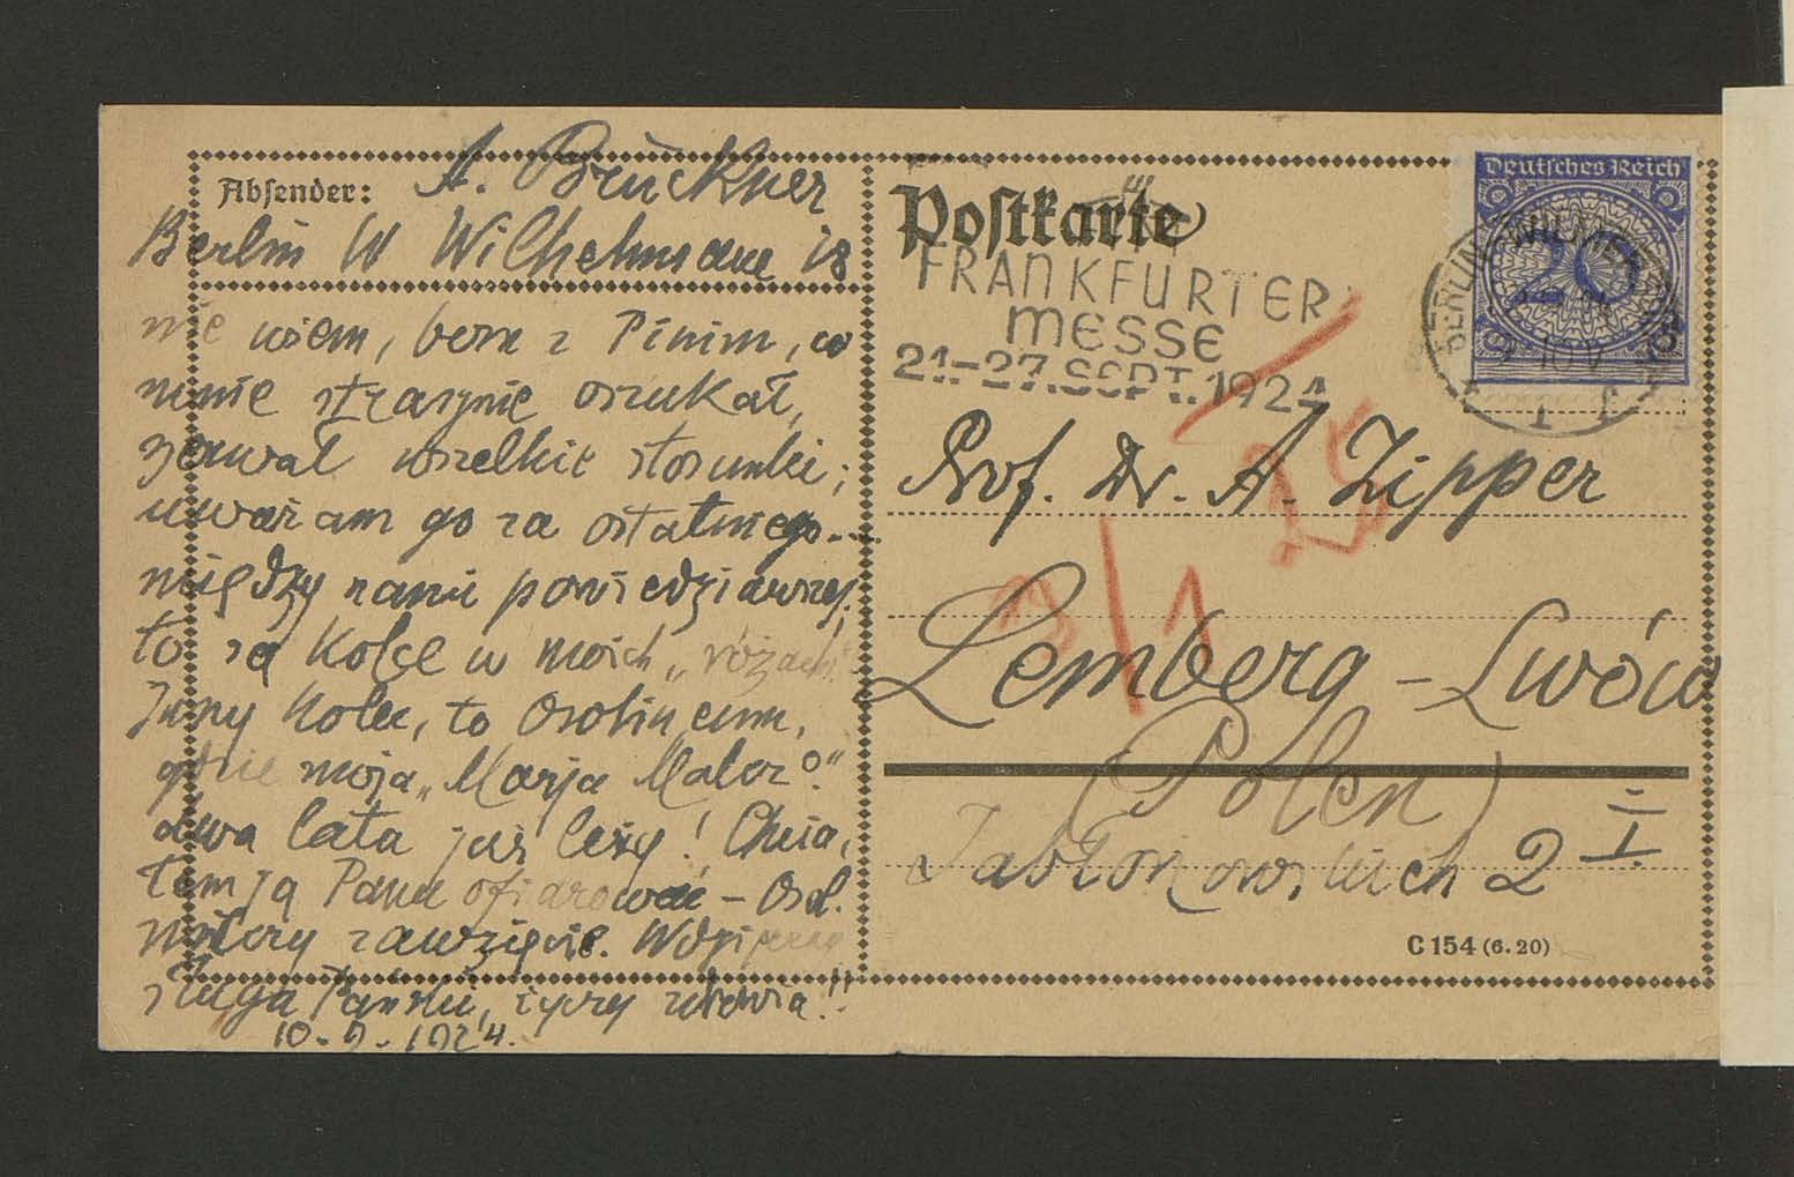 Absender: A. Brückner
Berlin W Wilhelmsaue 18
nie wiem, bom z Pinim, co
mnie strasznie oszukał,
zerwał wszelkie stosunki;
uważam go za ostatniego...
między nami powiedziawszy.
to są kolce w moich „różach“.
Inny kolec, to Ossolineum,
gdzie moja „Marja Malcz°.“
dwa lata już leży! Chcia,
łem ją Panu ofiarować – Osol.
zawzięcie.
sługa Pański, życzy zdrowia!!
10.9.1924.
Postkarte
FRANKFURTER
MESSE
21-27.SEPT.1924
Deutsches Reich
20
BERLIN WILMERSDORF
Prof. Dr. A. Zipper
Lemberg – Lwów
(Polen)
Jabłonowskich 2 I
C 154 (6.20)